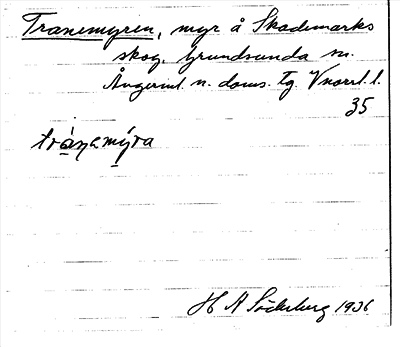 Tranemyren, myr å Skademarks
skog. Grundsunda sn.
Ångerml. n. doms. Tg. Vnorrl. l.
35
trànemýra
H A Söderberg 1936